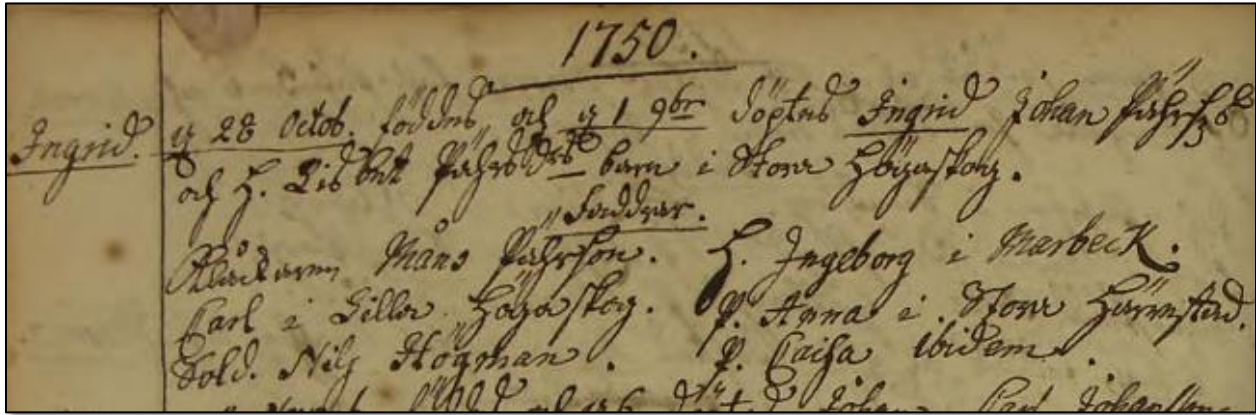 1750.
Ingrid. d 28 Octob. föddes, och d 1 9br döptes Ingrid Johan Pährs
och H. Lisbet Pährsdr barn i Stora Högaskog.
Faddrar.
Klåckaren Måns Pährson. H. Ingeborg i Marbeck.
Carl i Lilla Högaskog. P. Anna i Stora Härnstad.
Sold. Nils Högman. P. Caisa ibidem.
föddes och d 6 Johan Carl